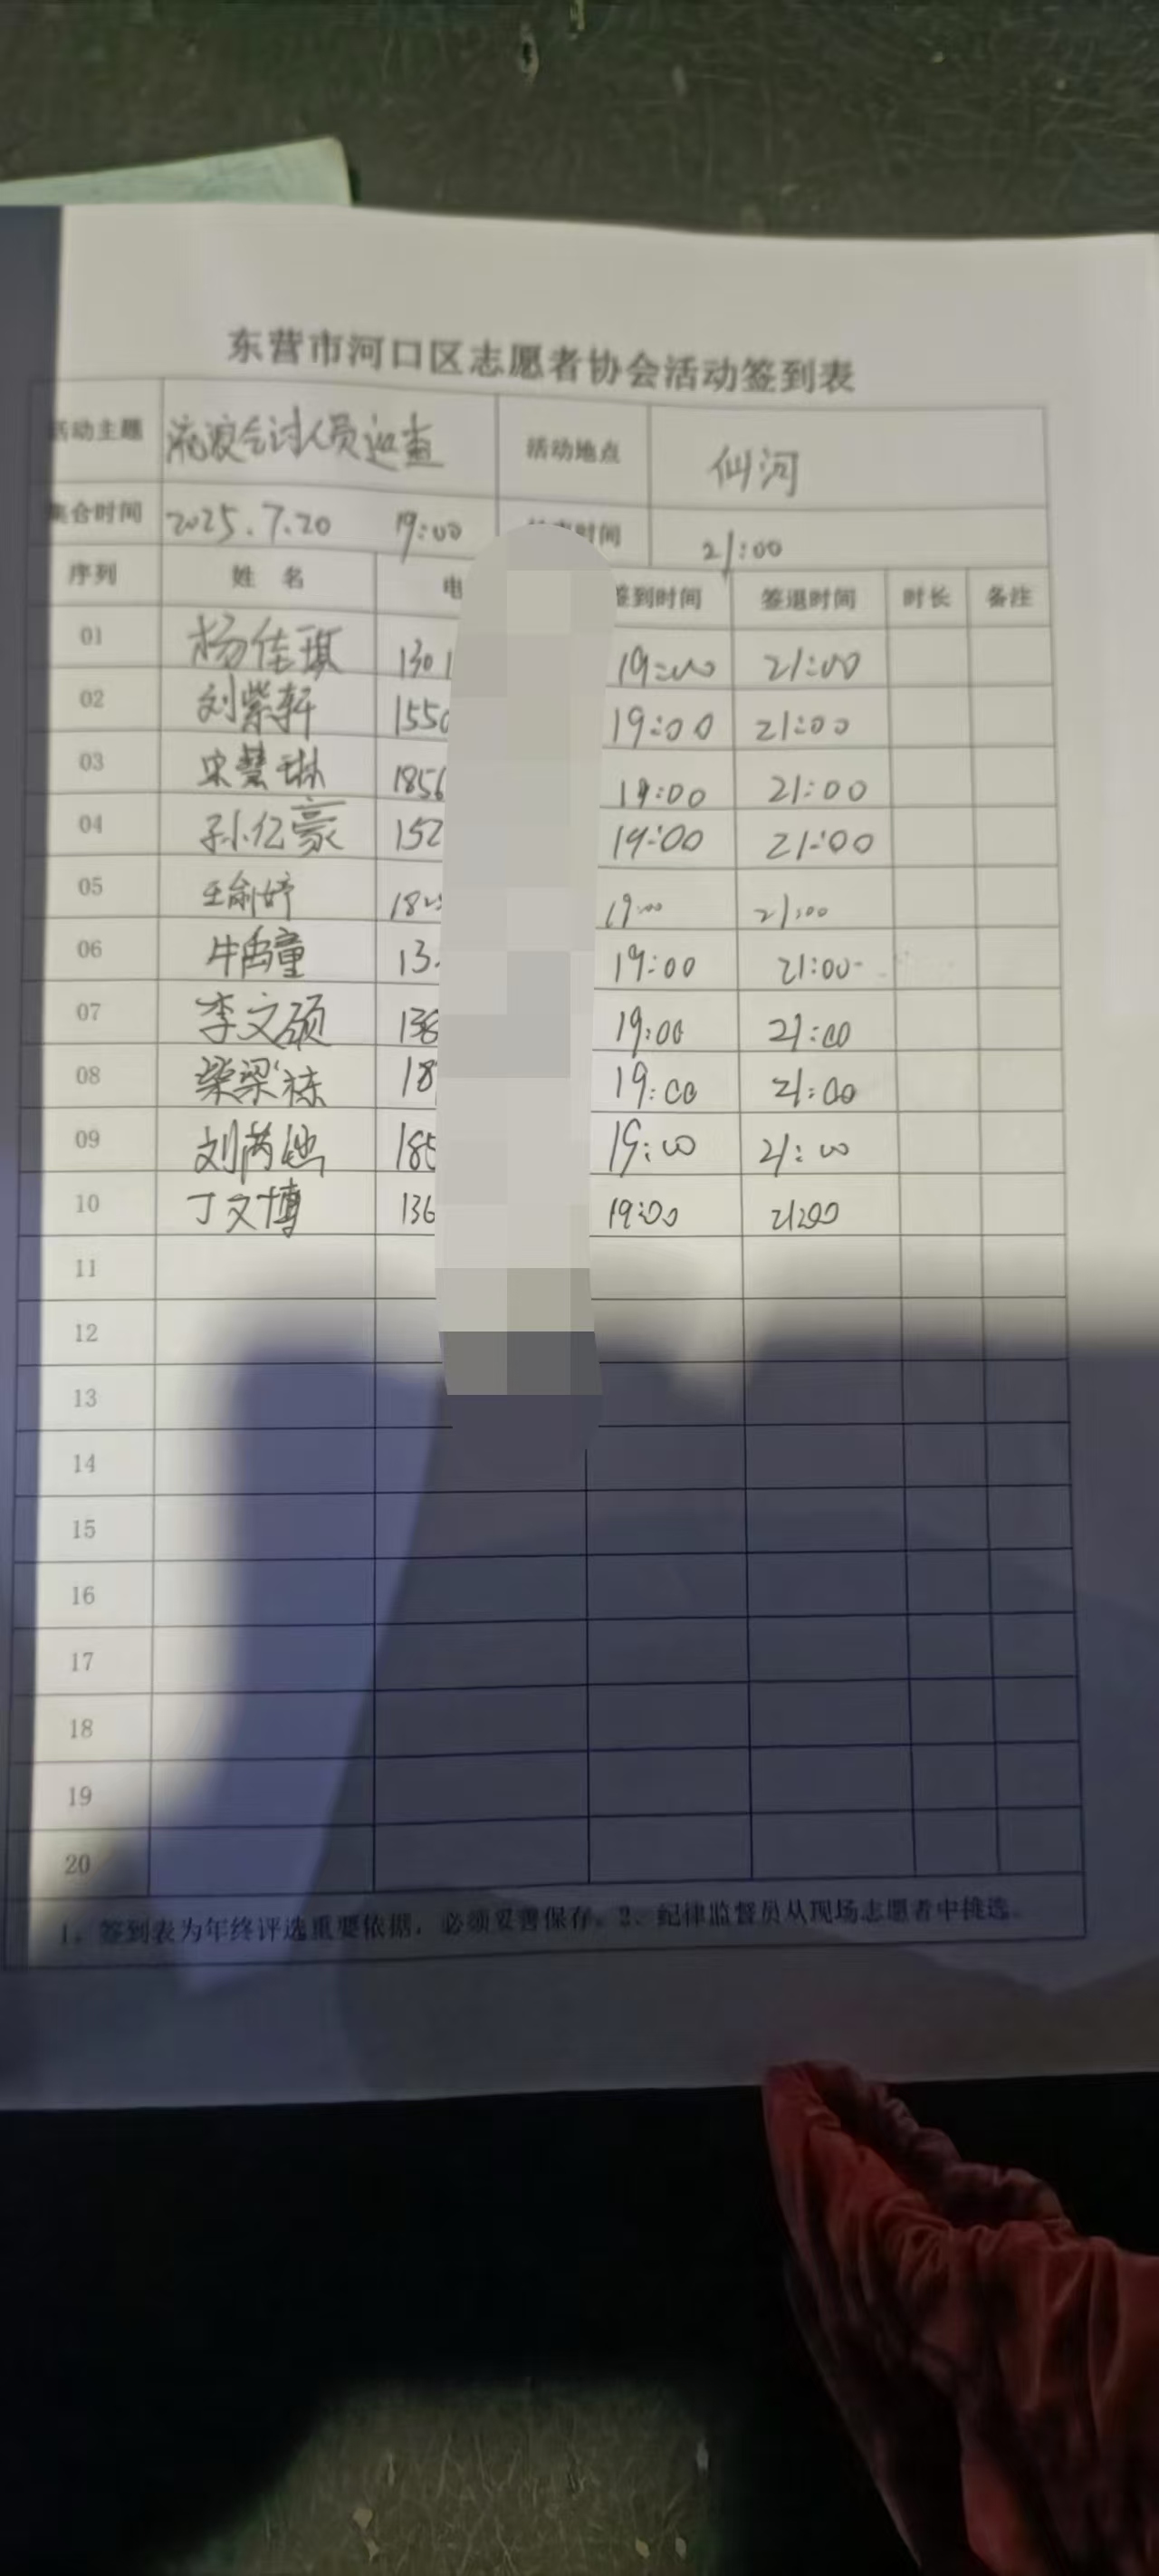 东营市河口区志愿者协会活动签到表
活动主题 流浪乞讨人员巡查 活动地点 仙河
集合时间 2025.7.20 19:00 时间 21:00
序列 姓 名 电 签到时间 签退时间 时长 备注
01 杨佳琪 130 19:00 21:00
02 刘紫轩 1550 19:00 21:00
03 宋慧琳 1856 19:00 21:00
04 孙亿豪 152 19:00 21:00
05 王俞婷 182 19:00 21:00
06 牛禹童 13 19:00 21:00
07 李文硕 138 19:00 21:00
08 柴梁栋 18 19:00 21:00
09 刘芮 185 19:00 21:00
10 丁文博 136 19:00 21:00
11
12
13
14
15
16
17
18
19
20
1、签到表为年终评选重要依据，必须妥善保存。2、纪律监督员从现场志愿者中挑选。